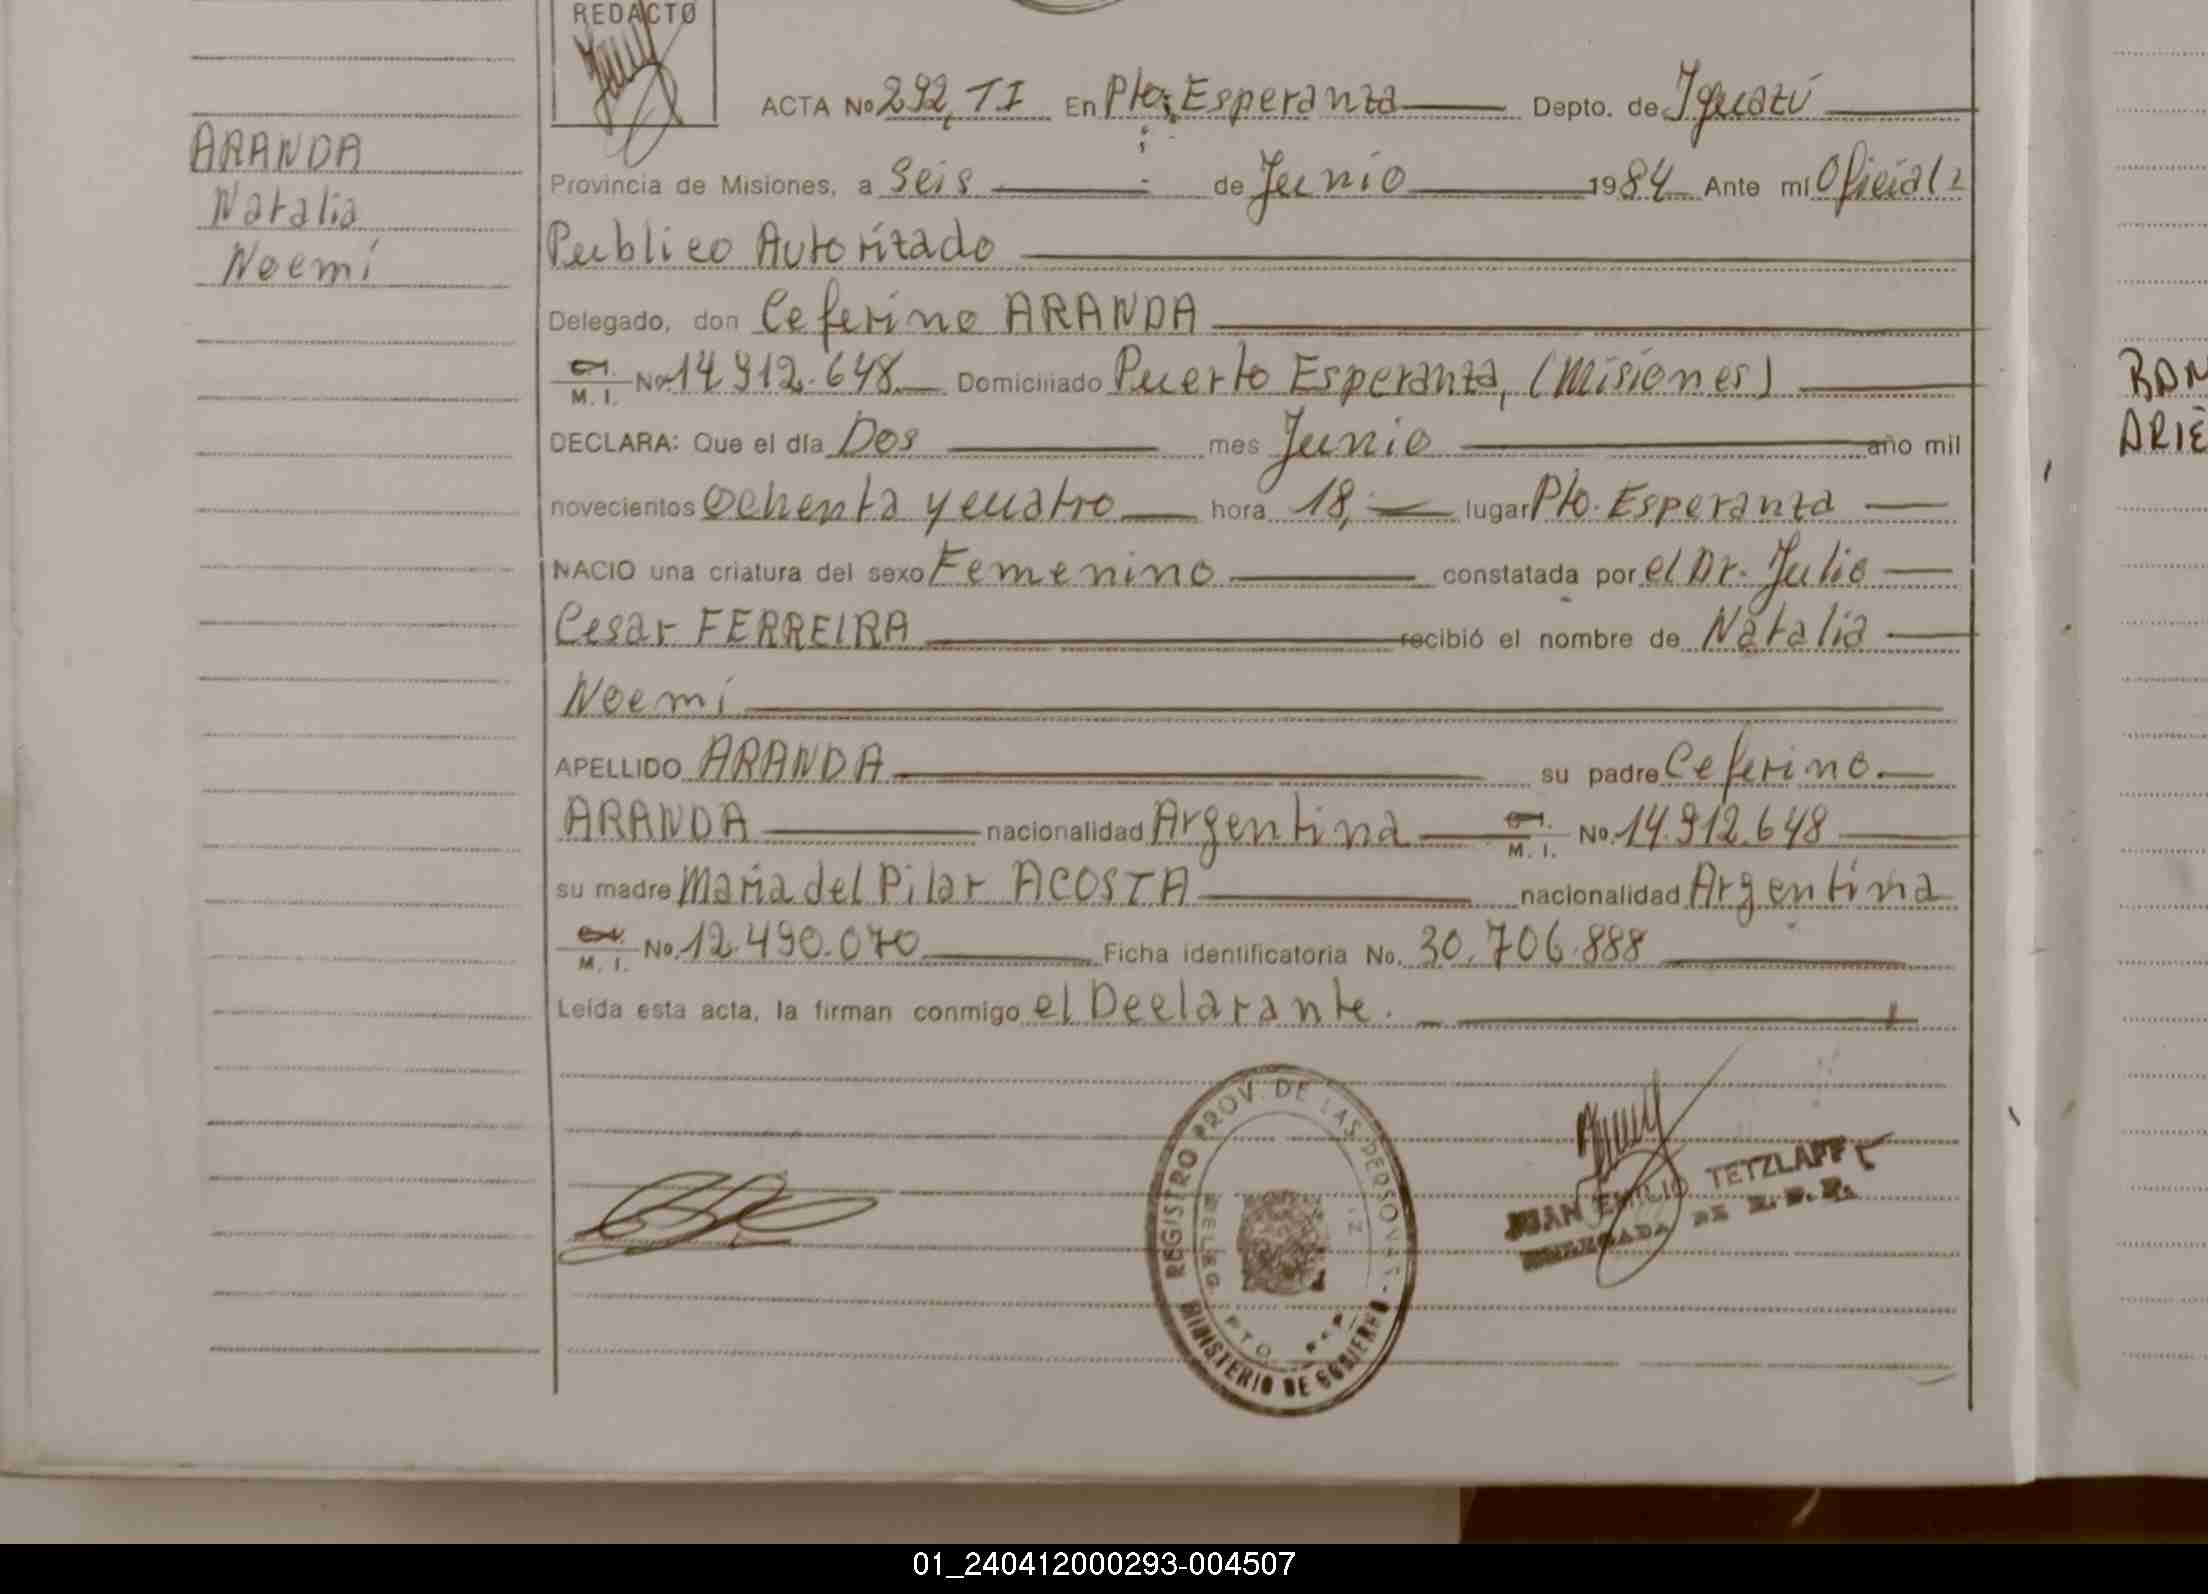 REDACTO
ACTA No 292, TI En Pto. Esperanza Depto. de Iguazú
ARANDA
Natalia
Noemí
Provincia de Misiones, a Seis de Junio 1984 Ante mí Oficial
Publico Autorizado
Delegado, don Ceferino ARANDA
M. I. No. 14.912.648 Domiciliado Puerto Esperanza, (Misiones)
DECLARA: Que el día Dos mes Junio año mil
novecientos Ochenta y cuatro hora 18, lugar Pto. Esperanza
NACIO una criatura del sexo Femenino constatada por el Dr. Julio
Cesar FERREIRA recibió el nombre de Natalia
Noemí
APELLIDO ARANDA su padre Ceferino
ARANDA nacionalidad Argentina M. I. No. 14.912.648
su madre Maria del Pilar ACOSTA nacionalidad Argentina
M. I. No. 12.490.070 Ficha identificatoria No. 30.706.888
Leída esta acta, la firman conmigo el Declarante.
REGISTRO PROV. DE LAS PERSONAS
MINISTERIO DE GOBIERNO
JUAN EMILIO TETZLAFF
01_240412000293-004507